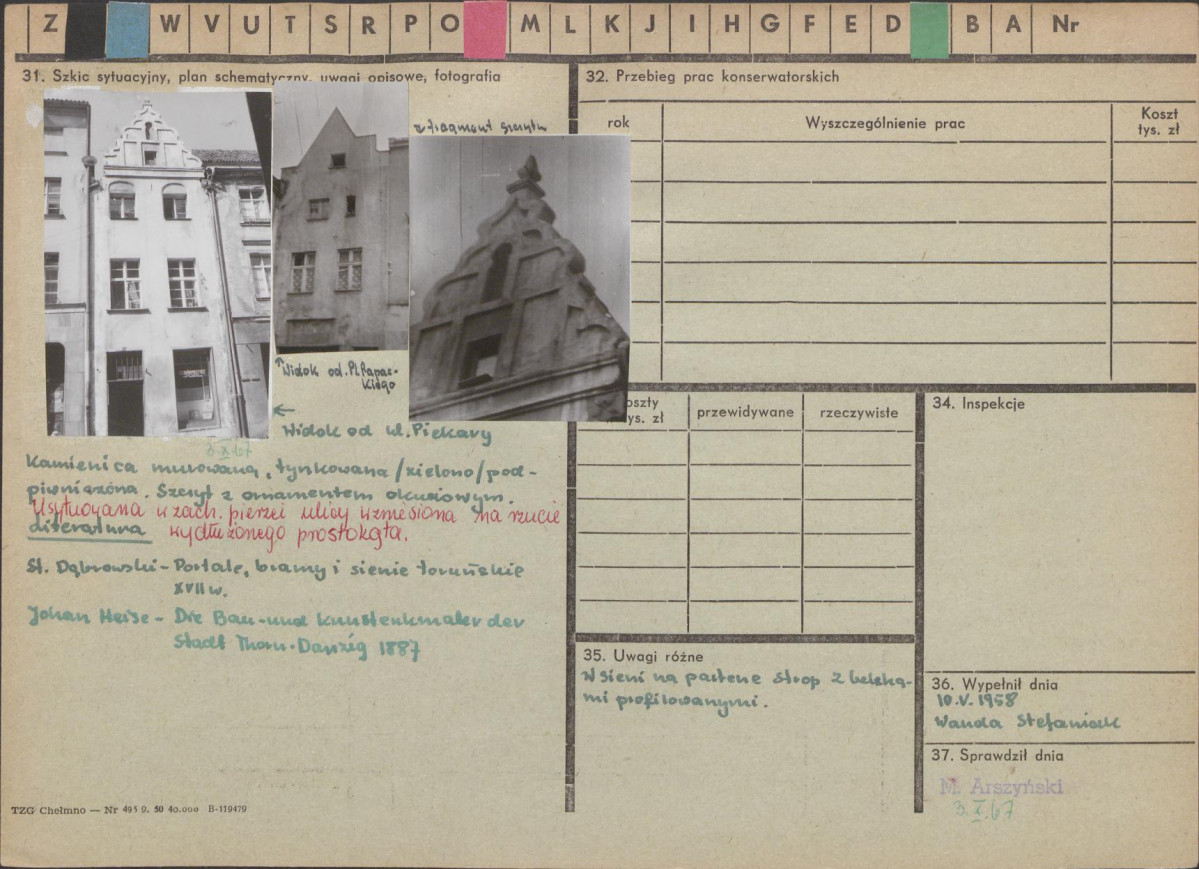 Z W V U T S R P O M L K J I H G F E D B A Nr
31. Szkic sytuacyjny, plan schematyczny, uwagi opisowe, fotografia
fragment szczytu
↑Widok od Pl. Rapac-
kiego
← Widok od ul. Piekary
3.X.67
Kamienica murowana, tynkowana /zielono/ pod-
piwniczona. Szczyt z ornamentem okuciowym.
Usytuowana w zach. pierzei ulicy wzniesiona na rzucie
literatura wydłużonego prostokąta.
St. Dąbrowski - Portale, bramy i sienie toruńskie
XVII w.
Johan Heise - Die Bau- und Kunstenkmaler der
Stadt Thorn - Danzig 1887
TZG Chełmno — Nr 495 9. 50 40.000 B-119479
32. Przebieg prac konserwatorskich
rok Wyszczególnienie prac Koszt
tys. zł
oszty
tys. zł przewidywane rzeczywiste
34. Inspekcje
35. Uwagi różne
W sieni na parterze strop z belka-
mi profilowanymi.
36. Wypełnił dnia
10.V.1958
Wanda Stefaniak
37. Sprawdził dnia
M. Arszyński
3.X.67